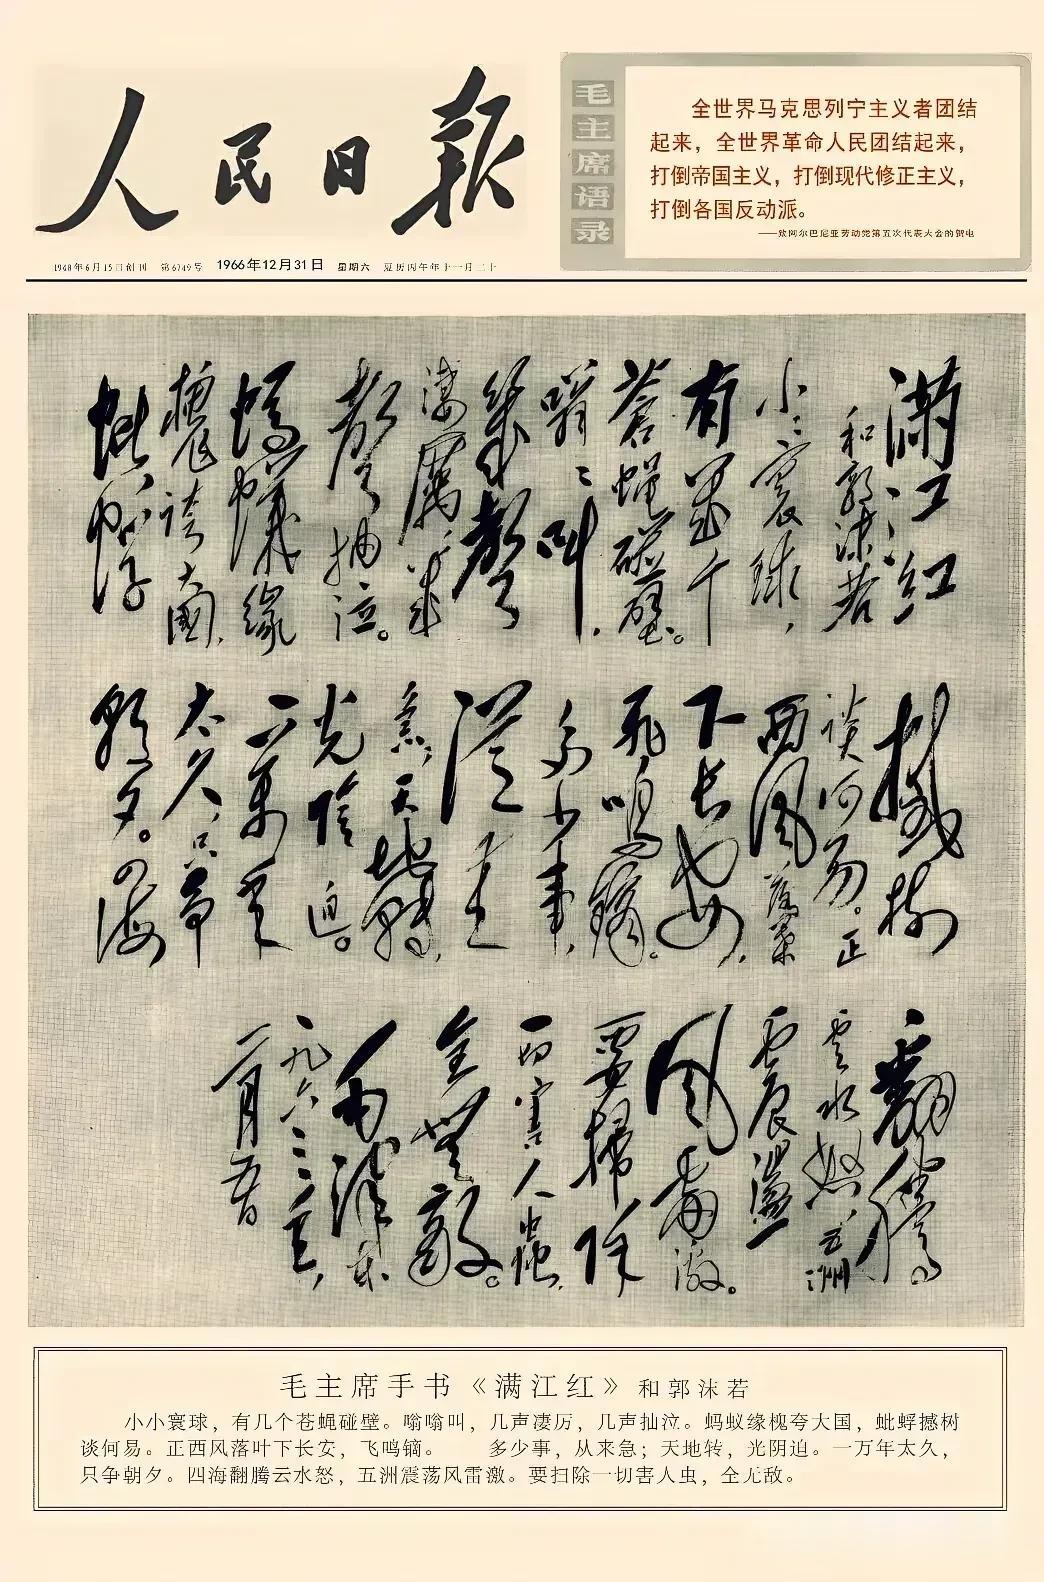 人民日报
1948年6月15日创刊 第6749号 1966年12月31日 星期六 夏历丙午年十一月二十
毛主席语录
全世界马克思列宁主义者团结
起来，全世界革命人民团结起来，
打倒帝国主义，打倒现代修正主义，
打倒各国反动派。
——致阿尔巴尼亚劳动党第五次代表大会的贺电
满江红
和郭沫若
小小寰球，
有几个
苍蝇碰壁。
嗡嗡叫，
几声
凄厉，几
声抽泣。
蚂蚁缘
槐夸大国，
蚍蜉
撼树
谈何易。正
西风落叶
下长安，
飞鸣镝。
多少事，
从来
急；天地转，
光阴迫。
一万年
太久只争
朝夕。四海
翻腾
云水怒，五洲
震荡
风雷激。
要扫除
一切害人虫，
全无敌。
毛泽东
一九六三年，
二月五日
毛主席手书《满江红》和郭沫若
小小寰球，有几个苍蝇碰壁。嗡嗡叫，几声凄厉，几声抽泣。蚂蚁缘槐夸大国，蚍蜉撼树
谈何易。正西风落叶下长安，飞鸣镝。 多少事，从来急；天地转，光阴迫。一万年太久，
只争朝夕。四海翻腾云水怒，五洲震荡风雷激。要扫除一切害人虫，全无敌。